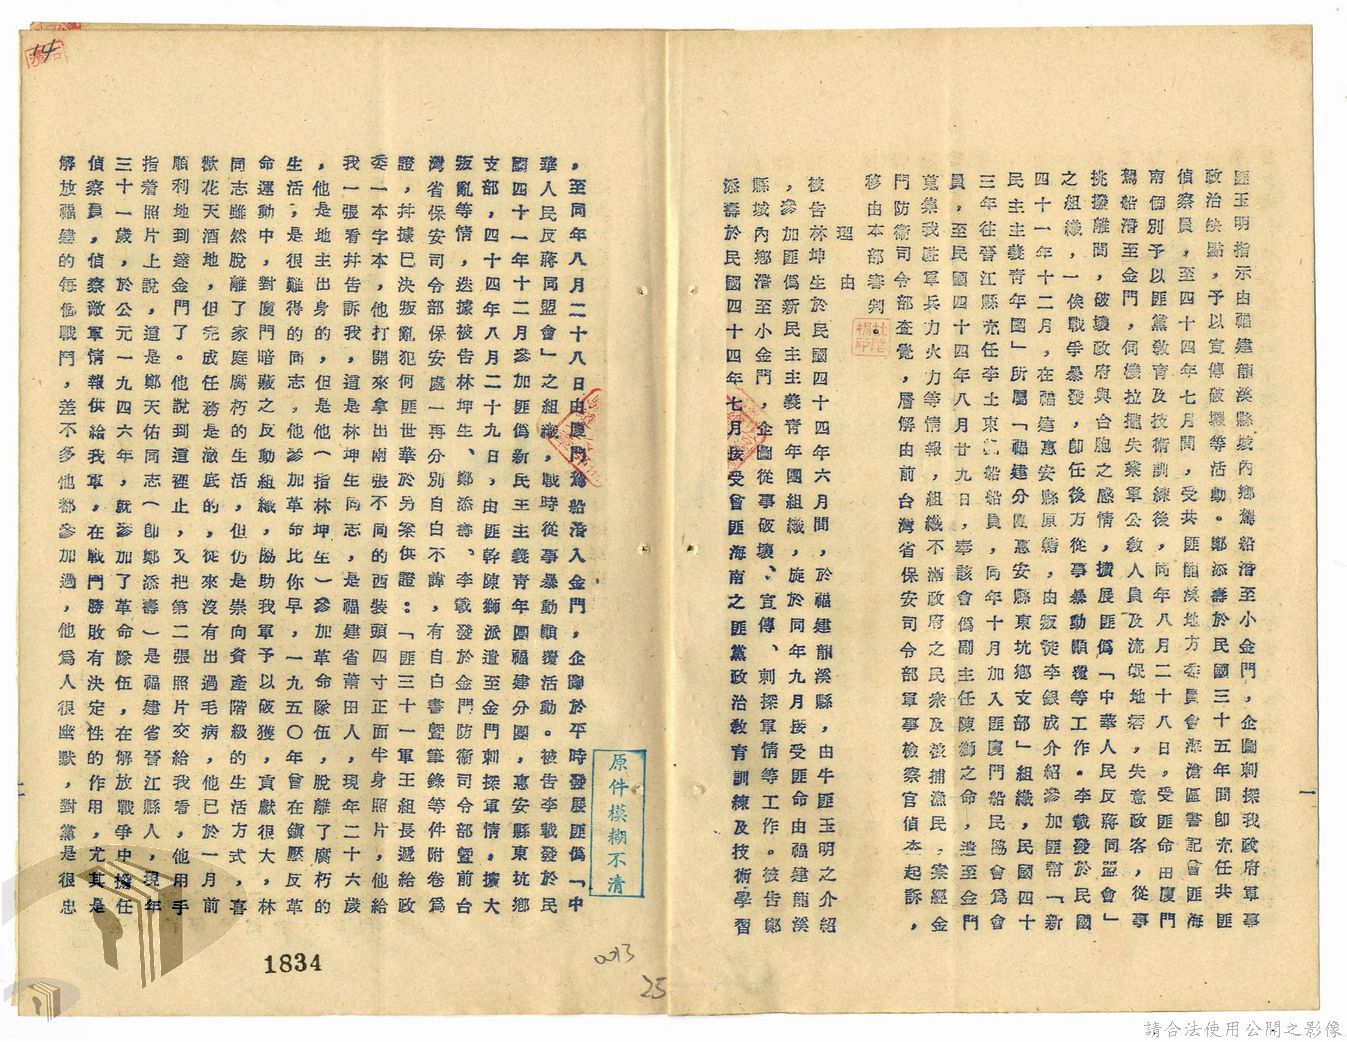 匪玉明指示由福建龍溪縣城內鄉駕船潛至小金門，企圖刺探我政府軍事
政治缺點，予以宣傳破壞等活動。鄭添壽於民國三十五年間即充任共匪
偵察員，至四十四年七月間，受共匪龍溪地方委員會海滄區書記曾匪海
南個別予以匪黨教育及技術訓練後，同年八月二十八日，受匪命由廈門
駕船潛至金門，伺機拉攏失業軍公教人員及流氓地痞，失意政客，從事
挑撥離間，破壞政府與台胞之感情，擴展匪偽「中華人民反蔣同盟會」
之組織，一俟戰爭暴發，即任後方從事暴動顛覆等工作。李載發於民國
四十一年十二月，在福建惠安縣原籍，由叛徒李銀成介紹參加匪幫「新
民主主義青年團」所屬「福建分團惠安縣東坑鄉支部」組織，民國四十
三年往晉江縣充任李土東船船員，同年十月加入匪廈門船民協會為會
員，至民國四十四年八月廿九日，奉該會偽副主任陳獅之命，遣至金門
蒐集我駐軍兵力火力等情報，組織不滿政府之民衆及被捕漁民，案經金
門防衛司令部查覺，層解由前台灣省保安司令部軍事檢察官偵查起訴，
移由本部審判。
理由
被告林坤生於民國四十四年六月間，於福建龍溪縣，由牛匪玉明之介紹
，參加匪偽新民主主義青年團組織，旋於同年九月接受匪命由福建龍溪
縣城內鄉潛至小金門，企圖從事破壞、宣傳、刺探軍情等工作。被告鄭
添壽於民國四十四年七月接受曾匪海南之匪黨政治教育訓練及技術學習
，至同年八月二十八日由廈門駕船潛入金門，企圖於平時發展匪偽「中
華人民反蔣同盟會」之組織，戰時從事暴動顛覆活動。被告李載發於民
國四十一年十二月參加匪偽新民主主義青年團福建分團，惠安縣東坑鄉
支部，四十四年八月二十九日，由匪幹陳獅派遣至金門刺探軍情，擴大
叛亂等情，迭據被告林坤生、鄭添壽、李載發於金門防衛司令部曁前台
灣省保安司令部保安處一再分別自白不諱，有自白書曁筆錄等件附卷為
證，幷據已決叛亂犯何匪世華於另案供證：「匪三十一軍王組長遞給政
委一本字本，他打開來拿出兩張不同的西裝頭四寸正面半身照片，他給
我一張看幷告訴我，這是林坤生同志，是福建省莆田人，現年二十六歲
，他是地主出身的，但是他（指林坤生）參加革命隊伍，脫離了腐朽的
生活，是很難得的同志，他參加革命比你早，一九五〇年曾在鎭壓反革
命運動中，對廈門暗藏之反動組織，協助我軍予以破獲，貢獻很大，林
同志雖然脫離了家庭腐朽的生活，但仍是崇向資產階級的生活方式，喜
歡花天酒地，但完成任務是澈底的，從來沒有出過毛病，他已於一月前
順利地到達金門了。他說到這裡止，又把第二張照片交給我看，他用手
指着照片上說，這是鄭天佑同志（即鄭添壽）是福建省晉江縣人，現年
三十一歲，於公元一九四六年，就參加了革命隊伍，在解放戰爭中擔任
偵察員，偵察敵軍情報供給我軍，在戰鬥勝敗有決定性的作用，尤其是
解放福建的每個戰鬥，差不多他都參加過，他為人很幽默，對黨是很忠
原件模糊不清
14
1834
25
一
二
請合法使用公開之影像